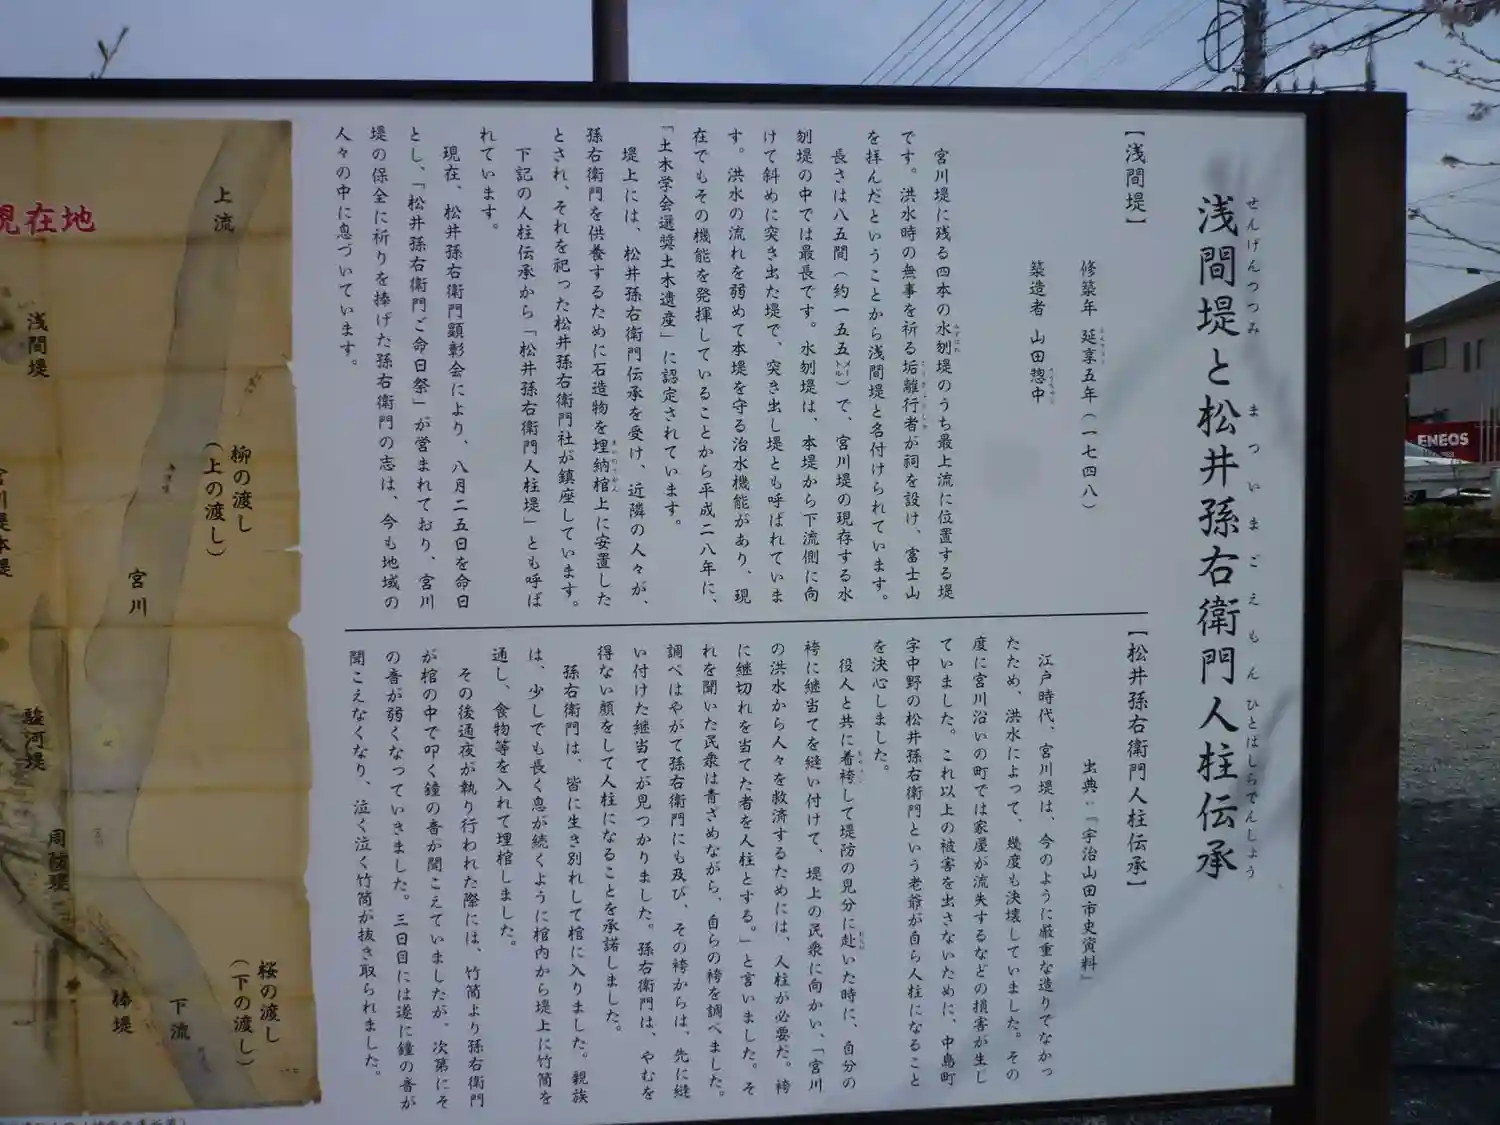 浅間堤と松井孫右衛門人柱伝承
せんげんつつみ まついまごえもん ひとばしらでんしょう
【浅間堤】
修築年 延享五年(一七四八)
築造者 山田惣中
宮川堤に残る四本の水刎堤のうち最上流に位置する堤
です。洪水時の無事を祈る垢離行者が祠を設け、富士山
を拝んだということから浅間堤と名付けられています。
長さは八五間(約一五五㍍)で、宮川堤の現存する水
刎堤の中では最長です。水刎堤は、本堤から下流側に向
けて斜めに突き出た堤で、突き出し堤とも呼ばれていま
す。洪水の流れを弱めて本堤を守る治水機能があり、現
在でもその機能を発揮していることから平成二八年に、
「土木学会選奨土木遺産」に認定されています。
堤上には、松井孫右衛門伝承を受け、近隣の人々が、
孫右衛門を供養するために石造物を埋納棺上に安置した
とされ、それを祀った松井孫右衛門社が鎮座しています。
下記の人柱伝承から「松井孫右衛門人柱堤」とも呼ば
れています。
現在、松井孫右衛門顕彰会により、八月二五日を命日
とし、「松井孫右衛門ご命日祭」が営まれており、宮川
堤の保全に祈りを捧げた孫右衛門の志は、今も地域の
人々の中に息づいています。
【松井孫右衛門人柱伝承】
出典:『宇治山田市史資料』
江戸時代、宮川堤は、今のように厳重な造りでなかっ
たため、洪水によって、幾度も決壊していました。その
度に宮川沿いの町では家屋が流失するなどの損害が生じ
ていました。これ以上の被害を出さないために、中島町
字中野の松井孫右衛門という老爺が自ら人柱になること
を決心しました。
役人と共に着袴して堤防の見分に赴いた時に、自分の
袴に継当てを縫い付けて、堤上の民衆に向かい、「宮川
の洪水から人々を救済するためには、人柱が必要だ。袴
に継切れを当てた者を人柱とする。」と言いました。そ
れを聞いた民衆は青ざめながら、自らの袴を調べました。
調べはやがて孫右衛門にも及び、その袴からは、先に縫
い付けた継当てが見つかりました。孫右衛門は、やむを
得ない顔をして人柱になることを承諾しました。
孫右衛門は、皆に生き別れして棺に入りました。親族
は、少しでも長く息が続くように棺内から堤上に竹筒を
通し、食物等を入れて埋棺しました。
その後通夜が執り行われた際には、竹筒より孫右衛門
が棺の中で叩く鐘の音が聞こえていましたが、次第にそ
の音が弱くなっていきました。三日目には遂に鐘の音が
聞こえなくなり、泣く泣く竹筒が抜き取られました。
上流
現在地
浅間堤
柳の渡し
(上の渡し)
宮川
宮川堤本堤
駿河堤
周防堤
棒堤
下流
桜の渡し
(下の渡し)
ENEOS